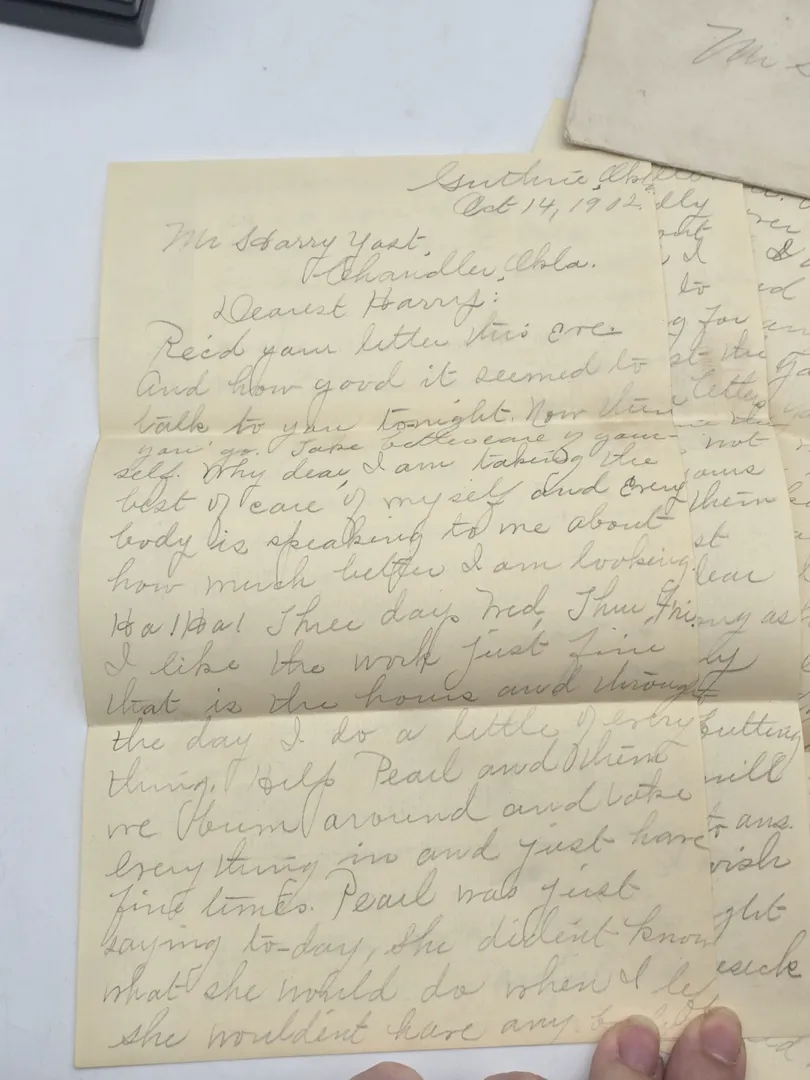 Guthrie, Okla.
Oct 14, 1902.
Mr Harry Yost,
Chandler, Okla.
Dearest Harry:
Rec'd your letter this eve.
And how good it seemed to
talk to you tonight. Now there
you go. Take better care of your-
self. Why dear, I am taking the
best of care of myself and every
body is speaking to me about
how much better I am looking.
Ha! Ha! Three days Wed, Thur, Fri.
I like the work just fine
that is the hours and through
the day I do a little of every
thing. Help Pearl and then
we bum around and take
everything in and just have
fine times. Pearl was just
saying to-day, she dident know
what she would do when I
she wouldent have any
Mr
dly
I
to
for
st the
letter
not
yours
them
st
dear
as
ly
cutting
will
to ans.
wish
ght
esick